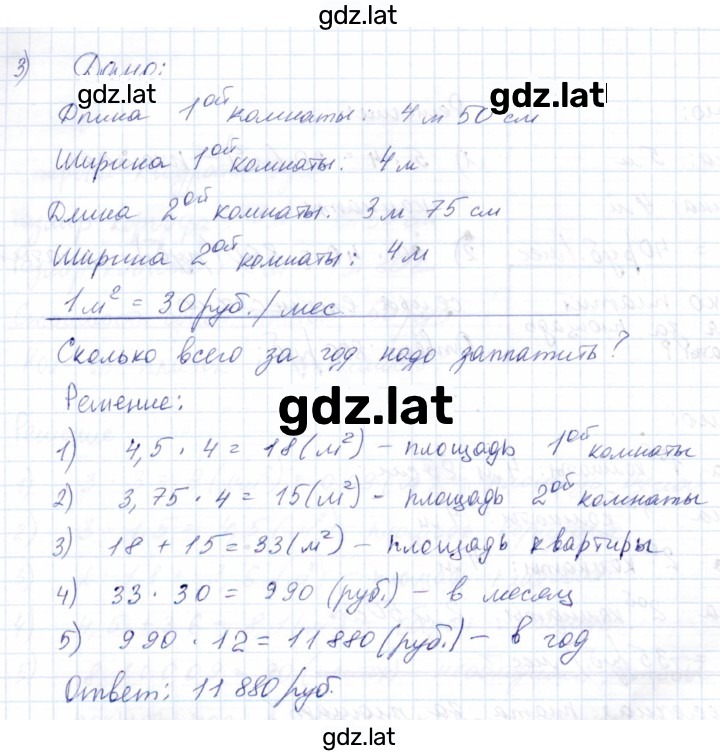 gdz.lat
3) Дано:
gdz.lat gdz.lat
Длина 1ой комнаты: 4 м 50 см
Ширина 1ой комнаты: 4 м
Длина 2ой комнаты: 3 м 75 см
Ширина 2ой комнаты: 4 м
1 м² = 30 руб./мес
Сколько всего за год надо заплатить?
Решение:
gdz.lat
1) 4,5 · 4 = 18 (м²) – площадь 1ой комнаты
2) 3,75 · 4 = 15 (м²) – площадь 2ой комнаты
3) 18 + 15 = 33 (м²) – площадь квартиры
4) 33 · 30 = 990 (руб.) – в месяц
5) 990 · 12 = 11 880 (руб.) – в год
Ответ: 11 880 руб.
gdz.lat